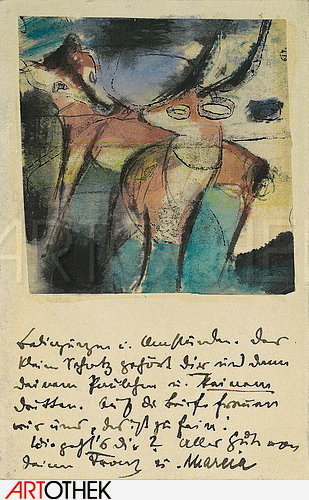 ARTOTHEK
Bedingungen u. Umstände. Der
kleine Schatz gehört dir und dann
deinem Paulchen u. keinem
dritten. Auf die Briefe freuen
wir uns, das ist zu fein!
Wie geht's dir? Alles Gute von
deinem Franz u. Marcia
ARTOTHEK